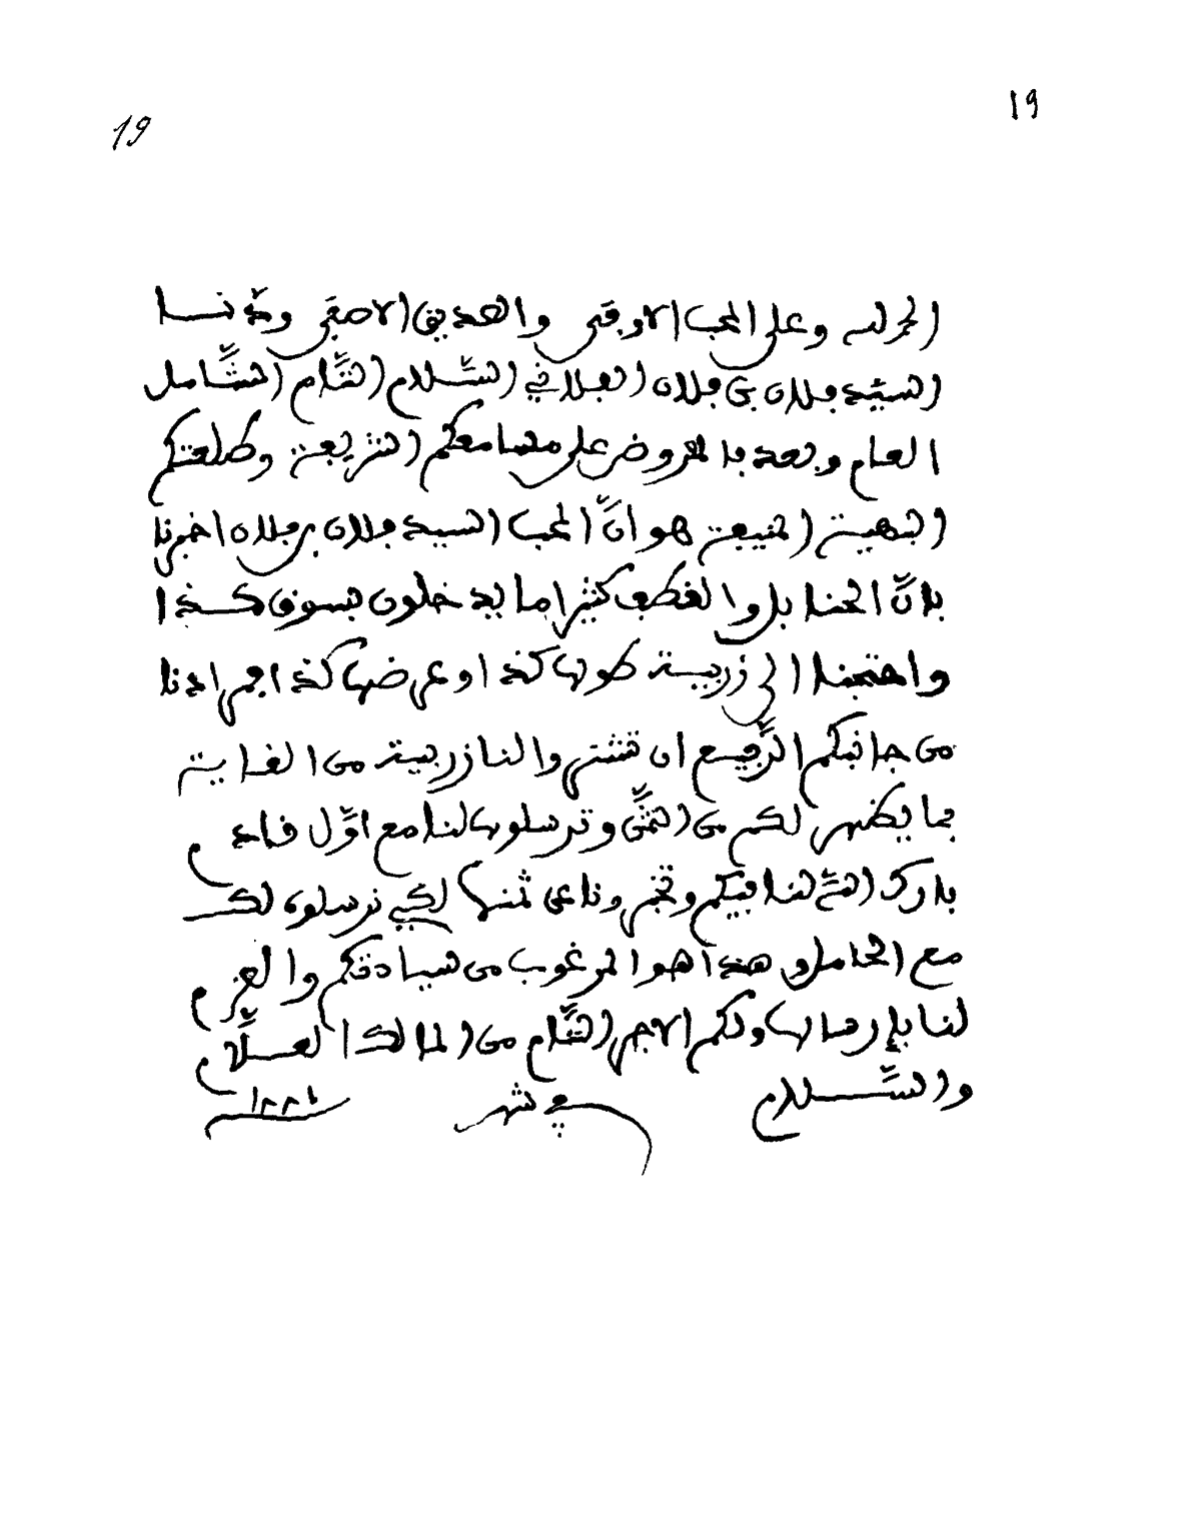 19
19
الحمد لله وعلى المحب الاوفى والصديق الاصفى ودّنا
السيّد فلان بن فلان الفلاني السّلام التّام الشّامل
العام وبعد فالمعروض على مسامعكم الشريفة وطلعتكم
البهية المنيفة هو انّ المحب السيد فلان بن فلان اخبرنا
بانّ الحنابل والقطف كثيرا ما يدخلون بسوق كذا
واحتجنا الى زربية طولها كذا وعرضها كذا فمرادنا
من جانبكم الرّفيع ان تشتروا لنا زربية من الغاية
بما يظهر لكم من الثمّن وترسلوها لنا مع اوّل قادم
بارك الله لنا فيكم وتخبرونا عن ثمنها لكي نرسلوه لكم
مع الحامل وهذا هو المرغوب من سيادتكم والعزم
لنا بإرسالها ولكم الاجر التّام من المالك العلّام
والسّلام في شهر ١٣٣١